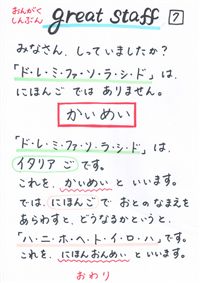 おんがく
しんぶん
great staff
7
みなさん、しっていましたか?
「ド・レ・ミ・ファ・ソ・ラ・シ・ド」は、
にほんご では ありません。
かいめい
「ド・レ・ミ・ファ・ソ・ラ・シ・ド」は、
イタリア ご です。
これを、かいめい と いいます。
では、にほんご で おとの なまえを
あらわすと、どうなるかというと、
「ハ・ニ・ホ・ヘ・ト・イ・ロ・ハ」です。
これを、にほんおんめい といいます。
おわり